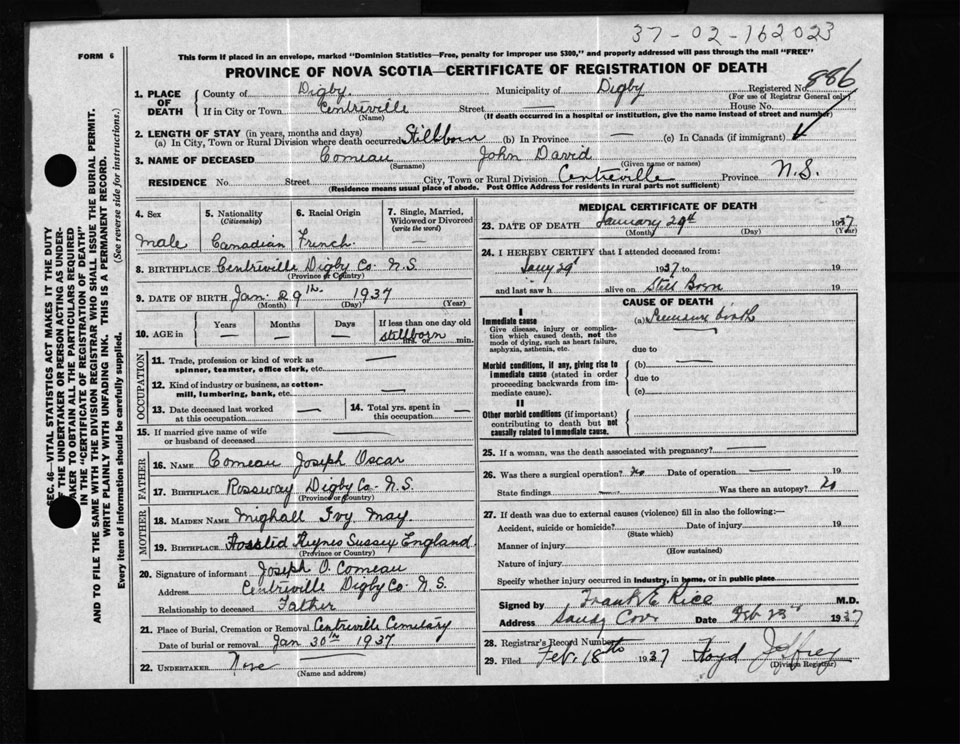 37-02-162023
FORM 6
This form if placed in an envelope, marked "Dominion Statistics—Free, penalty for improper use $300," and properly addressed will pass through the mail "FREE"
PROVINCE OF NOVA SCOTIA—CERTIFICATE OF REGISTRATION OF DEATH
886
1. PLACE OF DEATH County of Digby. Municipality of Digby Registered No.
(For use of Registrar General only)
If in City or Town Centreville Street House No.
(Name) (If death occurred in a hospital or institution, give the name instead of street and number)
2. LENGTH OF STAY (in years, months and days)
(a) In City, Town or Rural Division where death occurred Stillborn (b) In Province — (c) In Canada (if immigrant)
3. NAME OF DECEASED Comeau John David
(Surname) (Given name or names)
RESIDENCE No. Street City, Town or Rural Division Centreville Province N.S.
(Residence means usual place of abode. Post Office Address for residents in rural parts not sufficient)
SEC. 46—VITAL STATISTICS ACT MAKES IT THE DUTY
OF THE UNDERTAKER OR PERSON ACTING AS UNDER-
TAKER TO OBTAIN ALL THE PARTICULARS REQUIRED
IN THE "CERTIFICATE OF REGISTRATION OF DEATH"
AND TO FILE THE SAME WITH THE DIVISION REGISTRAR WHO SHALL ISSUE THE BURIAL PERMIT.
WRITE PLAINLY WITH UNFADING INK. THIS IS A PERMANENT RECORD.
Every item of information should be carefully supplied. (See reverse side for instructions.)
4. Sex 5. Nationality 6. Racial Origin 7. Single, Married,
(Citizenship) Widowed or Divorced
(write the word)
Male Canadian French. —
8. BIRTHPLACE Centreville Digby Co. N.S.
(Province or Country)
9. DATE OF BIRTH Jan. 29th 1937
(Month) (Day) (Year)
10. AGE in Years Months Days If less than one day old
— — — stillborn hrs. or min.
OCCUPATION
11. Trade, profession or kind of work as —
spinner, teamster, office clerk, etc.
12. Kind of industry or business, as cotton-
mill, lumbering, bank, etc. —
13. Date deceased last worked 14. Total yrs. spent in
at this occupation — this occupation —
15. If married give name of wife
or husband of deceased —
FATHER
16. NAME Comeau Joseph Oscar
17. BIRTHPLACE Rossway Digby Co. N.S.
(Province or Country)
MOTHER
18. MAIDEN NAME Mighall Ivy May.
19. BIRTHPLACE Keynes Sussex England
(Province or Country)
20. Signature of informant Joseph O. Comeau
Address Centreville Digby Co. N.S.
Relationship to deceased Father
21. Place of Burial, Cremation or Removal Centreville Cemetary
Date of burial or removal Jan 30th 1937.
22. UNDERTAKER None
(Name and address)
MEDICAL CERTIFICATE OF DEATH
23. DATE OF DEATH January 29th 1937
(Month) (Day) (Year)
24. I HEREBY CERTIFY that I attended deceased from:
1937 to 19
and last saw h alive on Still Born 19
CAUSE OF DEATH
I
Immediate cause (a) birth
Give disease, injury or complica-
tion which caused death, not the
mode of dying, such as heart failure,
asphyxia, asthenia, etc. due to
Morbid conditions, if any, giving rise to (b) —
immediate cause (stated in order due to
proceeding backwards from im-
mediate cause). (c)
II
Other morbid conditions (if important)
contributing to death but not
causally related to immediate cause.
25. If a woman, was the death associated with pregnancy? —
26. Was there a surgical operation? No Date of operation — 19
State findings — Was there an autopsy? No
27. If death was due to external causes (violence) fill in also the following:—
Accident, suicide or homicide? Date of injury 19
(State which)
Manner of injury
(How sustained)
Nature of injury
Specify whether injury occurred in industry, in home, or in public place
Signed by Frank E Rice M.D.
Address Sandy Cove Date Feb 1937
28. Registrar's Record Number
29. Filed Feb. 18th 1937 Floyd Jeffrey
(Division Registrar)